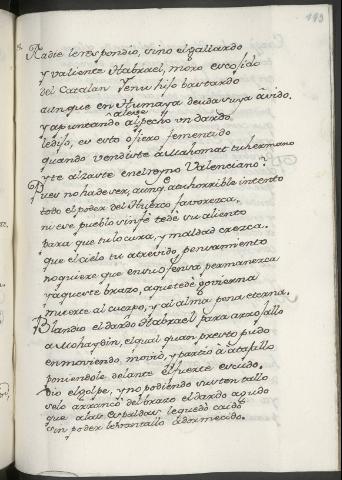 193
Nadie le respondio, sino el gallardo
y valiente Habrael, moro escojido
del Catalan Yenu hijo bastardo
aunque en Humaya deuda suya auido.
aleue y
y apuntando al pecho vn dardo
le dijo, eu esto o fiero fementado
quando vendiste a Mahomat tu hermano
y te alzaste en el reyno Valenciano?
Pues no ha de ser, aunq a tu horrible intento
todo el poder del Huerco fauorezca.
ni ese pueblo sin fè te dè su aliento
para que tu locura, y maldad crezca.
que el cielo tu atreuido pensamiento
no quiere que en su ofensa permanezca
y aqueste brazo, aquete dè gouierna
muerte al cuerpo, y al alma pena eterna.
Blandio el dardo Habrael para arrojallo
a Mohaydin, el qual quan presto pudo
en mouiendo, mouio, y partio a atajallo
poniendole delante el fuerte escudo.
Dio el golpe, y no podiendo sustentallo
se lo arrancò del brazo el dardo agudo
que a las espaldas le quedò caido
sin poder leuantallo adormecido.